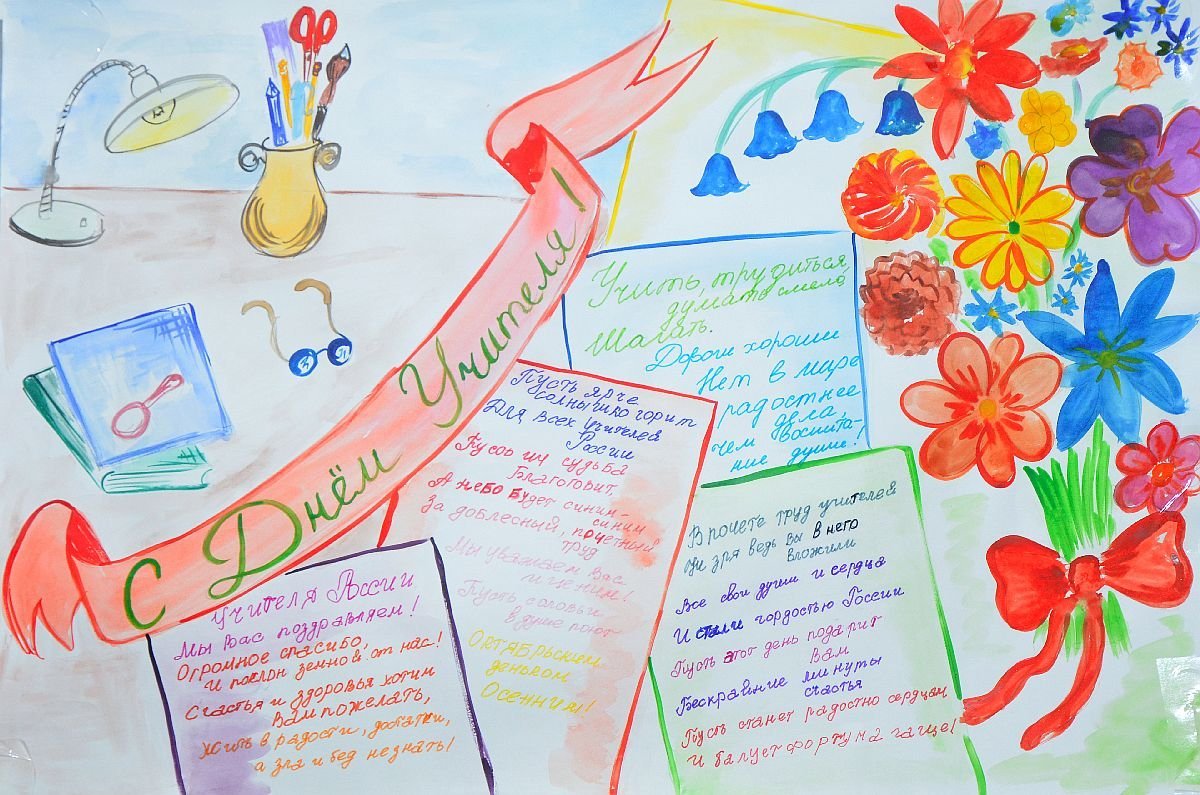 С Днём Учителя!
Учить, трудиться,
думать смело,
Шагать.
Дороги хороши
Нет в мире
радостнее
дела,
чем воспита-
ние души!
Пусть ярче
солнышко горит
Для всех учителей
России
Пусть их судьба
Благоговит,
А небо будет синим-
синим
За доблесный, почетный
труд
Мы уважаем вас
и ценим!
Пусть соловьи
в душе поют
Октябрьским
деньком
Осенним!
В почете труд учителей
Ни зря ведь вы в него
вложили
Все свои души и сердца
И стали гордостью России
Пусть этот день подарит
Вам
Бескрайние минуты
счастья
Пусть станет радостно сердцам
И балует фортуна чаще!
Учителя России
Мы Вас поздравляем!
Огромное спасибо,
И поклон земной от нас!
Счастья и здоровья хотим
Вам пожелать,
Жить в радости, достатки,
а зла и бед не знать!